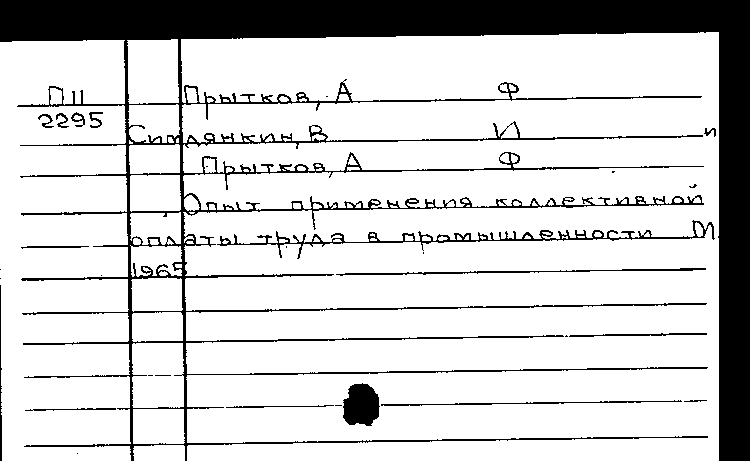 П11 Прытков, А Ф
2295
Симдянкин, В И и
Прытков, А Ф
Опыт применения коллективной
оплаты труда в промышленности М
1965